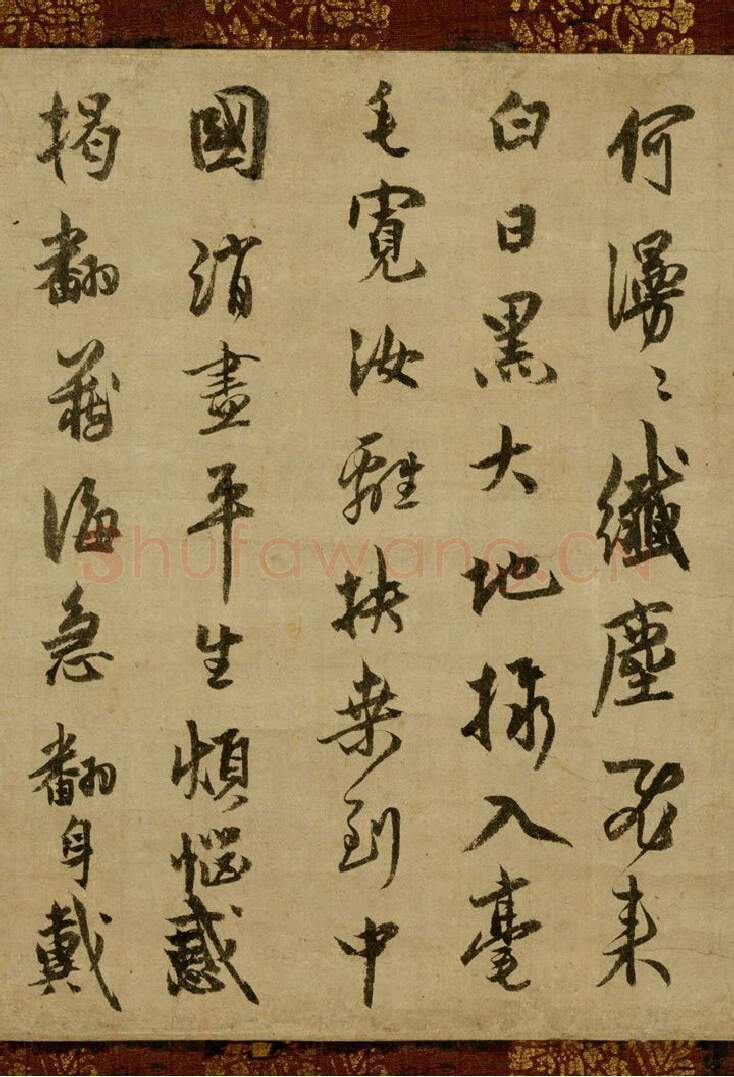 何漫々纖塵飛來
白日黑大地入毫
毛寬汝離扶桑到中
國消盡平生煩惱惑
揭翻藏海急翻身戴
Shufawang.CN